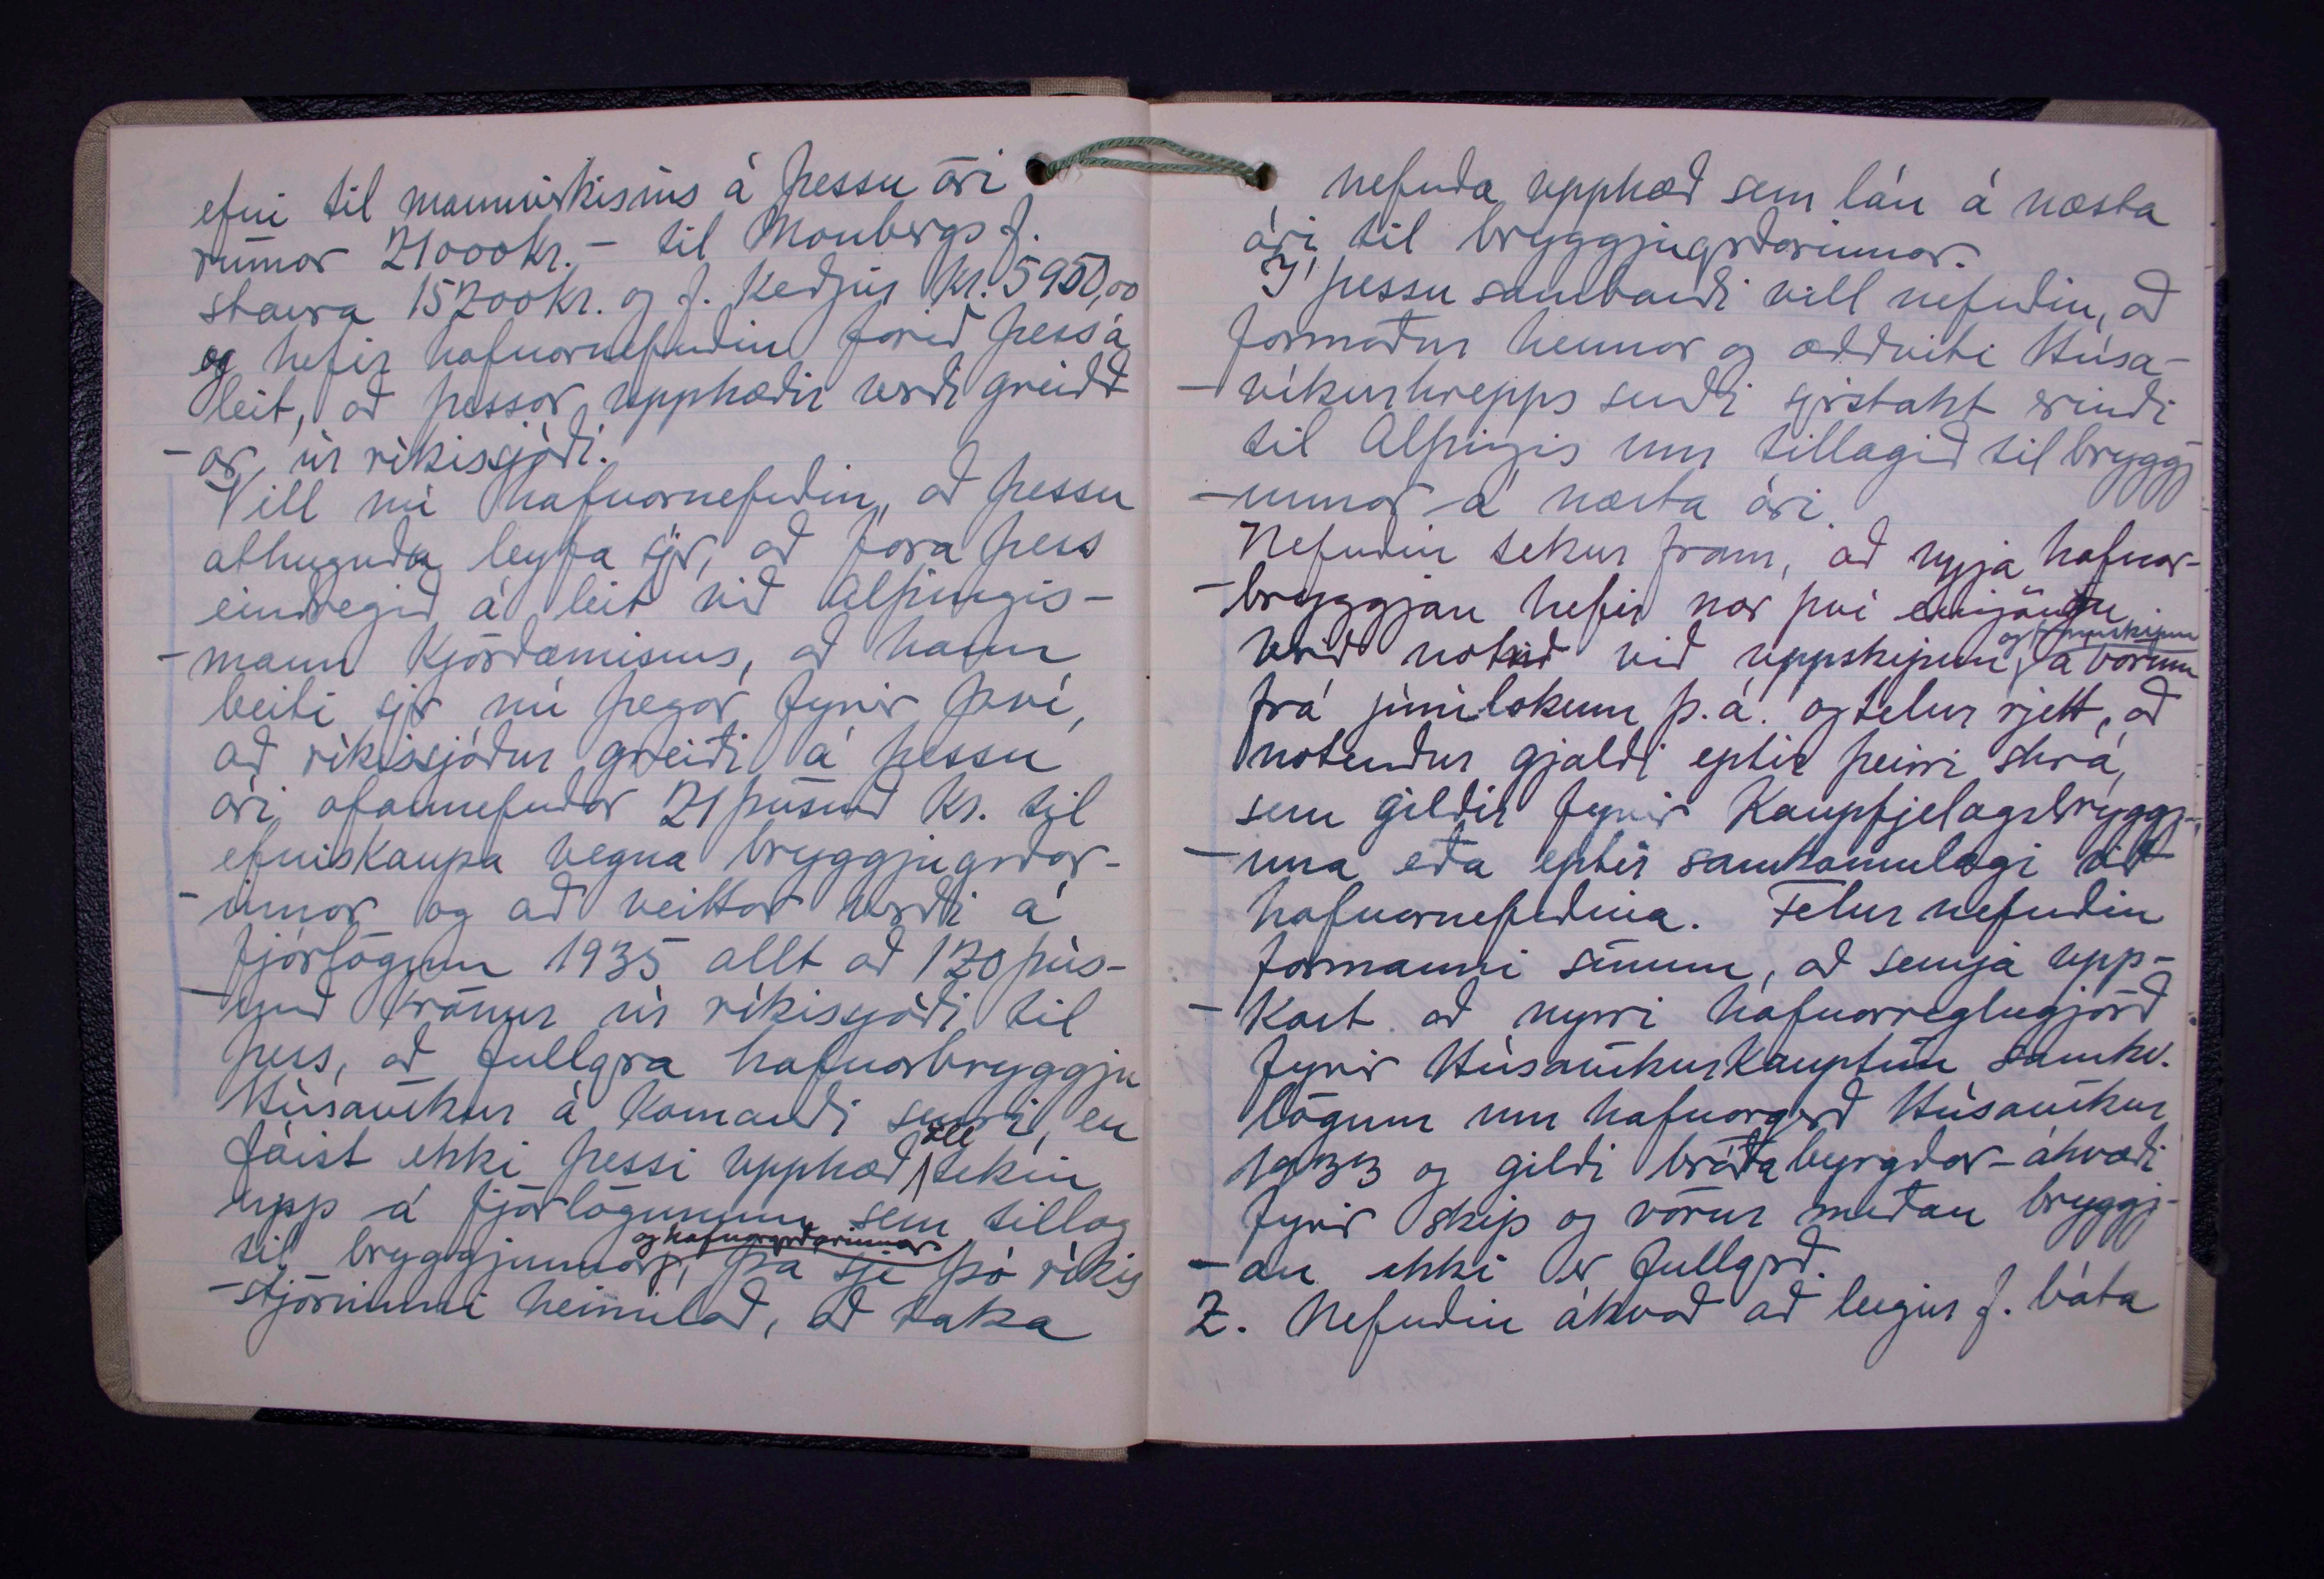 efni til mannvirkisins á þessu ári
rúmar 21000kr. – til Monbergs f.
staura 15200kr. og f. keðjur kr. 5950,00
og hefir hafnarnefndin farið þess á
leit, að þessar upphæðir verði greidd
-ar úr ríkissjóði.
Vill nú hafnarnefndin, að þessu
athuguðu leyfa sjer, að fara þess
eindregið á leit við Alþingis-
-mann kjördæmisins, að hann
beiti sjer nú þegar fyrir því,
að ríkissjóður greiði á þessu
ári ofannefndar 21 þúsund kr. til
efniskaupa vegna bryggjugerðar-
-innar og að veittar verði á
fjárlögum 1935 allt að 120 þús-
-und krónur úr ríkissjóði til
þess, að fullgera hafnarbryggju
Húsavíkur á komandi sumri, en
fáist ekki þessi upphæð öll tekin
upp á fjárlögunum sem tillag
til bryggjunnar og hafnargerðarinnar, þá sje þó ríkis
-stjórninni heimilað, að taka
nefnda upphæð sem lán á næsta
ári til bryggjugerðarinnar.
Í þessu sambandi vill nefndin, að
formaður hennar og oddviti Húsa-
-víkurhrepps sendi sjerstakt erindi
til Alþingis um tillagið til bryggj
-unnar á næsta ári.
Nefndin tekur fram, að nyja hafnar-
-bryggjan hefir nær því eingöngu
verið notuð við uppskipun og framskipun á vörum
frá júnilokum þ.á. og telur rjett, að
notendur gjaldi eptir þeirri skrá,
sem gildir fyrir Kaupfjelagsbryggj-
-una eða eptir samkomulagi við
hafnarnefndina. Felur nefndin
formanni sínum, að semja upp-
-kast að nyrri hafnarreglugjörð
fyrir Húsavíkurkauptún samkv.
lögum um hafnargerð Húsavíkur
1933 og gildi bráðabyrgðar-ákvæði
fyrir skip og vörur meðan bryggj-
-an ekki er fullgerð.
2. Nefndin ákvað að leigur f. báta